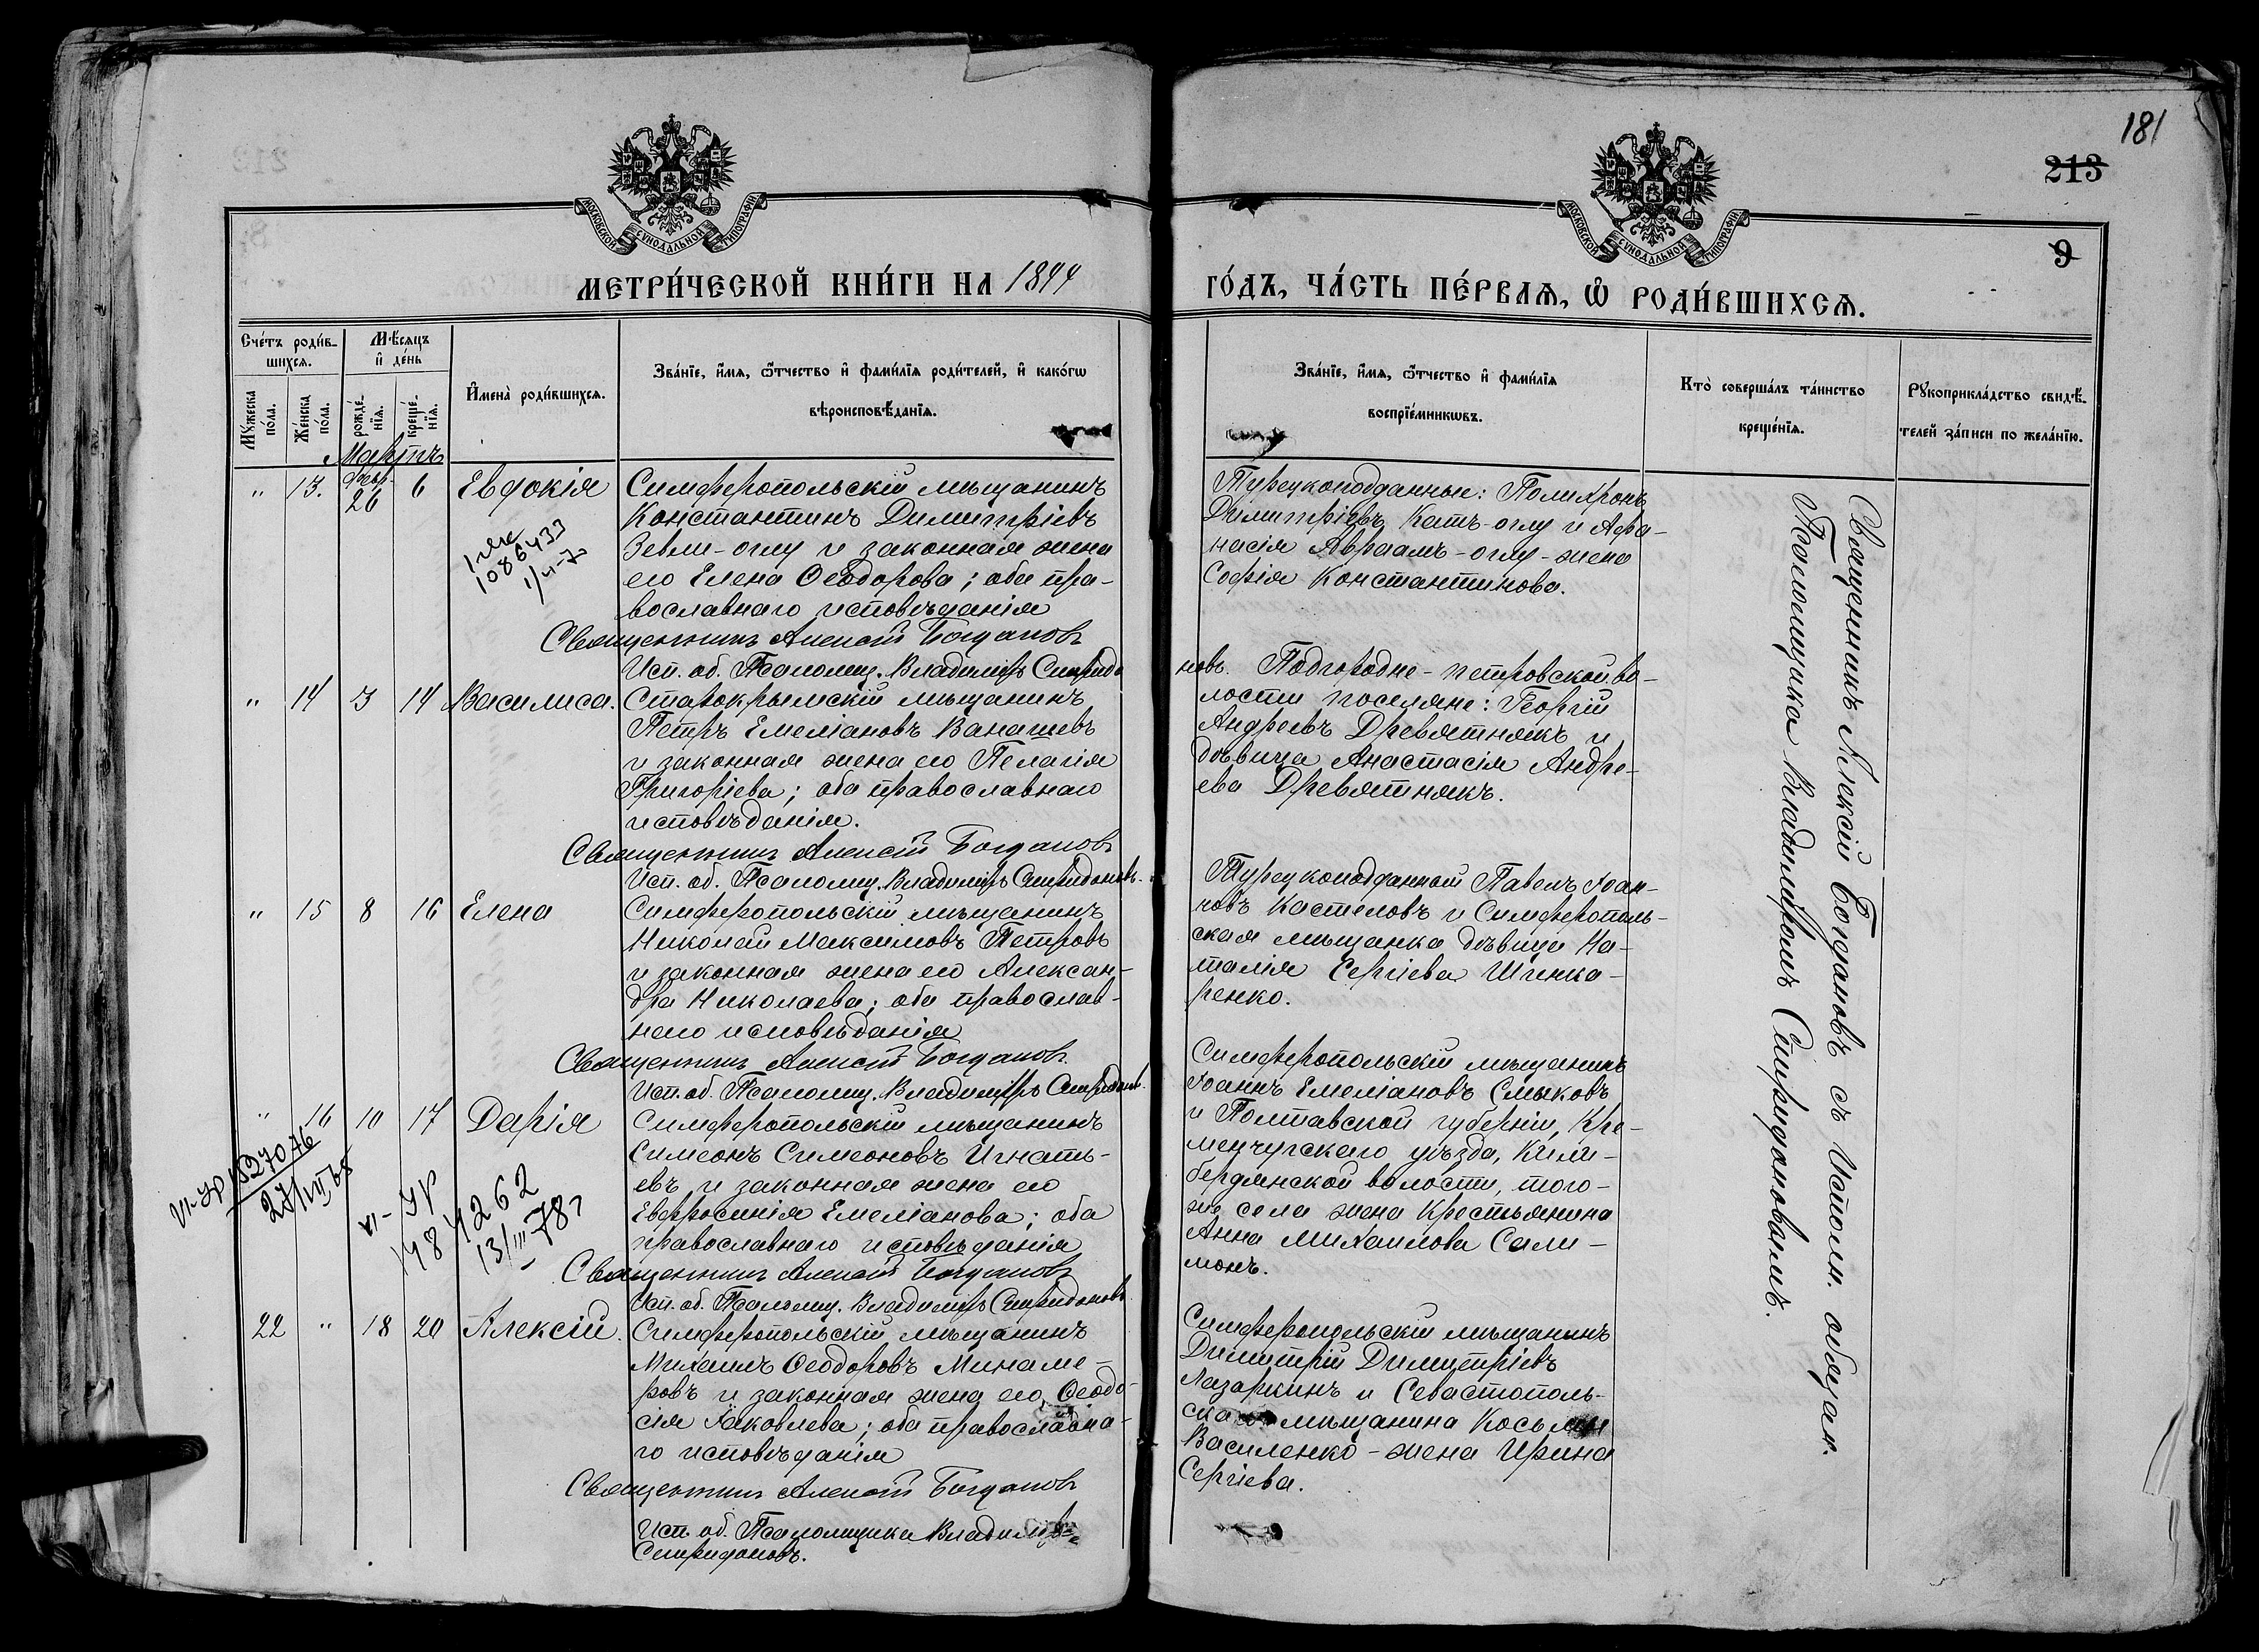 181
213
9
МОСКОВСКОЙ СѴНОДАЛЬНОЙ ТИПОГРАФІИ
МОСКОВСКОЙ СѴНОДАЛЬНОЙ ТИПОГРАФІИ
МЕТРИ́ЧЕСКОЙ КНИ́ГИ НА 1899
ГО́ДЪ, ЧА́СТЬ ПЕ́РВАѦ, Ѡ҆ РОДИ́ВШИХСѦ.
Сче́тъ роди́в-
шихсѧ.
Мѣ́сѧцъ
и҆ де́нь
Мꙋ́жеска
по́ла.
Же́нска
по́ла.
рожде́-
нїѧ.
креще́-
нїѧ.
И҆мена̀ роди́вшихсѧ.
Зва́нїе, и҆́мѧ, ѻ҆́тчество и҆ фами́лїѧ роди́телей, и҆ како́гѡ
вѣроисповѣ́данїѧ.
Зва́нїе, и҆́мѧ, ѻ҆́тчество и҆ фами́лїѧ
воспрїе́мникѡвъ.
Кто̀ соверша́лъ та́инство
креще́нїѧ.
Рꙋкоприкла́дство свидѣ́-
телей за́писи по жела́нїю.
Мартъ
" 13. Февр. 26 6 Евдокія
Симферопольскій мѣщанинъ
Константинъ Димитріевъ
Зевли-оглу и законная жена
его Елена Ѳеодорова; оба пра-
вославнаго исповѣданія
Священникъ Алексій Богдановъ
Исп. об. Псаломщ. Владиміръ Спиридо
новъ.
Турецкоподданные: Полихронъ
Димитріевъ Катъ-оглу и Афа-
насія Авраамъ-оглу-жена
Софія Константинова.
1086433
" 14 3 14 Василиса.
Старокрымскій мѣщанинъ
Петръ Емеліановъ Ванашевъ
и законная жена его Пелагія
Григоріева; оба православнаго
исповѣданія.
Священникъ Алексій Богдановъ
Исп. об. Псаломщ. Владиміръ Спиридоновъ.
Подгородне-петровской во-
лости поселяне: Георгій
Андреевъ Древятнякъ и
дѣвица Анастасія Андре-
ева Древятнякъ.
" 15 8 16 Елена
Симферопольскій мѣщанинъ
Николай Максимовъ Петровъ
и законная жена его Алексан-
дра Николаева; оба православ-
наго исповѣданія
Священникъ Алексій Богдановъ
Исп. об. Псаломщ. Владиміръ Спиридоновъ.
Турецкоподданный Павелъ Іоан-
новъ Кастеловъ и Симферополь-
ская мѣщанка дѣвица На-
талія Сергіева Шинка-
ренко.
" 16 10 17 Дарія
Симферопольскій мѣщанинъ
Симеонъ Симеоновъ Игнать-
евъ и законная жена его
Евфросинія Емеліанова; оба
православнаго исповѣданія
Священникъ Алексій Богдановъ
Исп. об. Псаломщ. Владиміръ Спиридоновъ.
Симферопольскій мѣщанинъ
Іоаннъ Емеліановъ Смыковъ
и Полтавской губерніи, Кре-
менчугскаго уѣзда, Кили-
бердянской волости, того-
же села жена крестьянина
Анна Михаилова Сали-
монъ.
VI-УР 1527076
VI-УР
1484262
13/III-78г
22 " 18 20 Алексій.
Симферопольскій мѣщанинъ
Михаилъ Ѳеодоровъ Минаме-
ровъ и законная жена его, Ѳеодо-
сія Іаковлева; оба православна-
го исповѣданія
Священникъ Алексій Богдановъ
Исп. об. Псаломщика Владиміръ
Спиридоновъ.
Симферопольскій мѣщанинъ
Димитрій Димитріевъ
Лазаркинъ и Севастополь-
скаго мѣщанина Косьмы
Василенко-жена Ирина
Сергіева.
Священникъ Алексій Богдановъ съ Исполн. обязан.
Псаломщика Владиміромъ Спиридоновымъ.